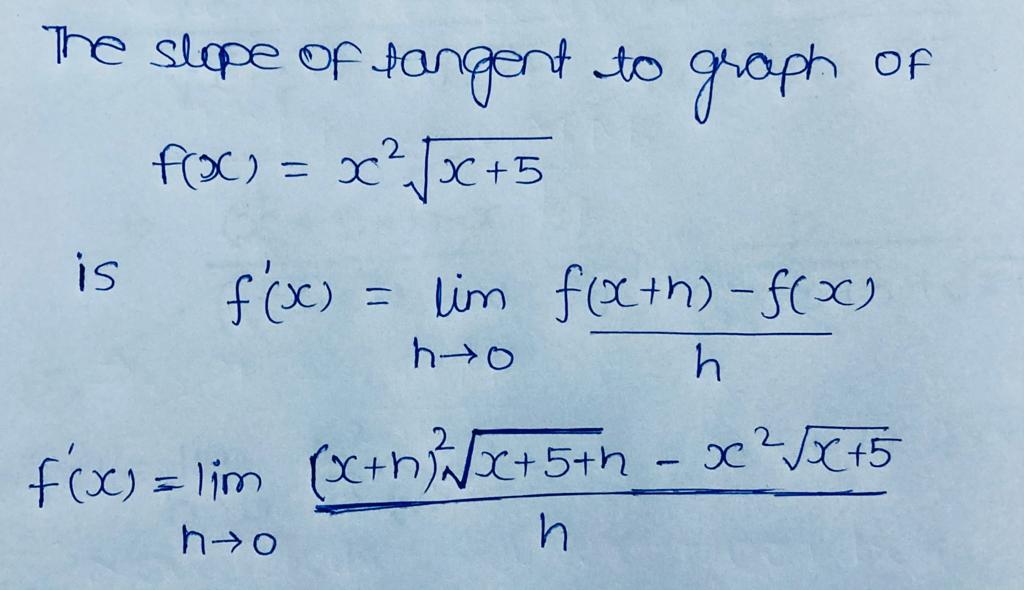 The slope of tangent to graph of
f(x) = x²√x+5
is f'(x) = lim f(x+h) - f(x)
h→0 h
f'(x) = lim (x+h)²√x+5+h - x²√x+5
h→0 h